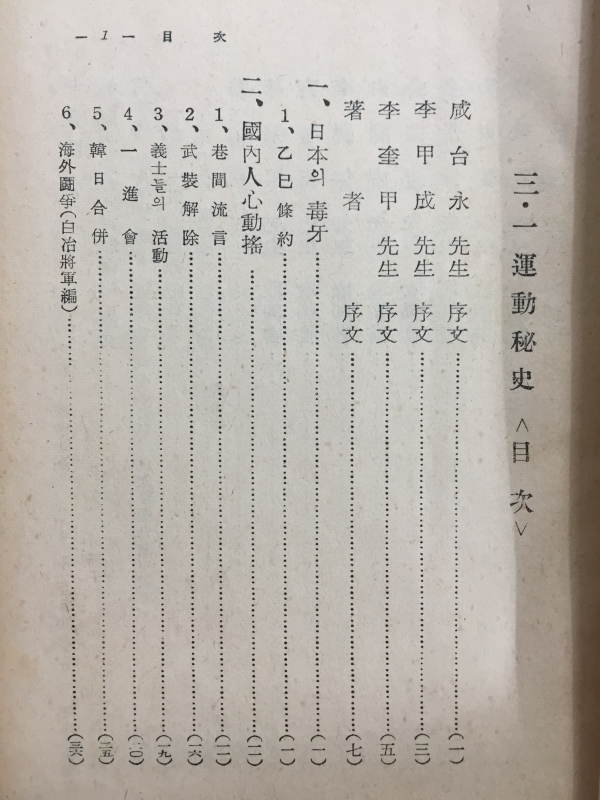 三·一運動秘史 <目次>
咸台永先生 序文……(一)
李甲成先生 序文……(三)
李奎甲先生 序文……(五)
著者 序文……(七)
一、日本의 毒牙……(一)
1、乙巳條約……(一)
二、國內人心動搖……(一一)
1、巷間流言……(一一)
2、武裝解除……(一六)
3、義士들의 活動……(一九)
4、一進會……(二〇)
5、韓日合併……(二五)
6、海外鬪爭(白冶將軍編)……(三六)
— 1 — 目次